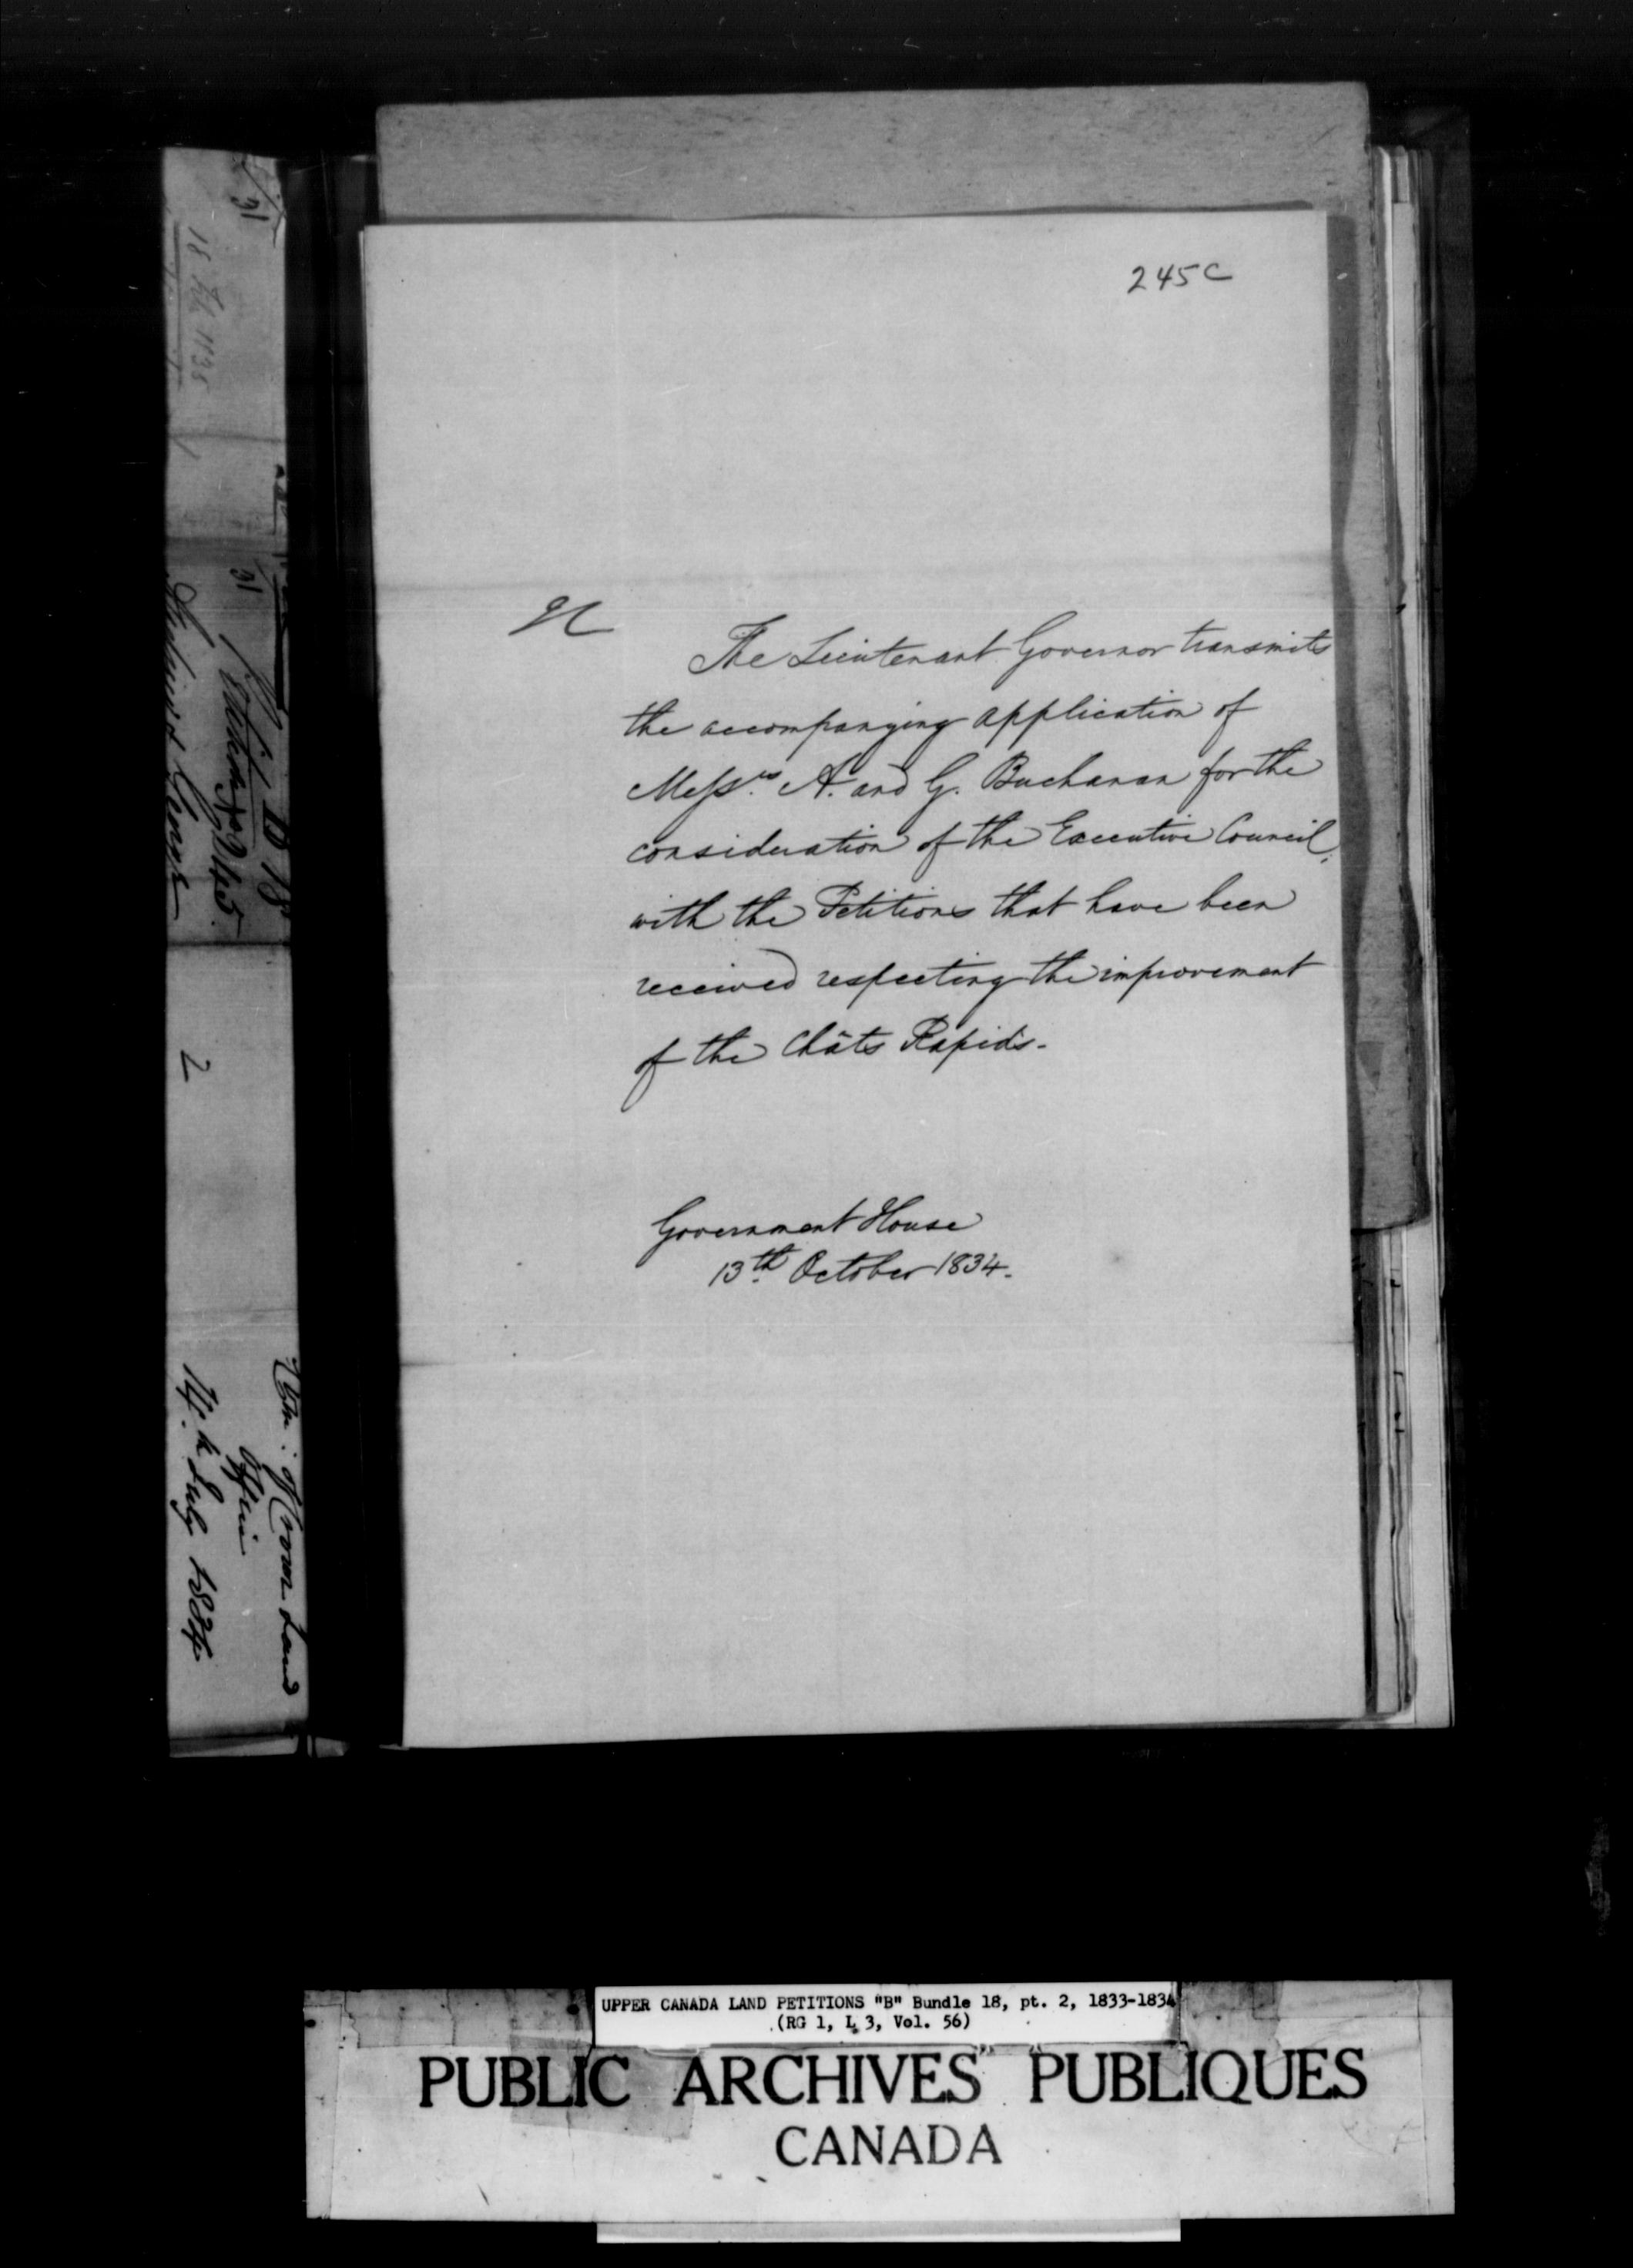 245C
The Lieutenant Governor transmits
the accompanying application of
Messrs. A. and G. Buchanan for the
consideration of the Executive Council,
with the Petitions that have been
received respecting the improvement
of the Châts Rapids.
Government House
13th October 1834.
2
Office
14th July 1834
UPPER CANADA LAND PETITIONS "B" Bundle 18, pt. 2, 1833-1834
(RG 1, L 3, Vol. 56)
PUBLIC ARCHIVES PUBLIQUES
CANADA